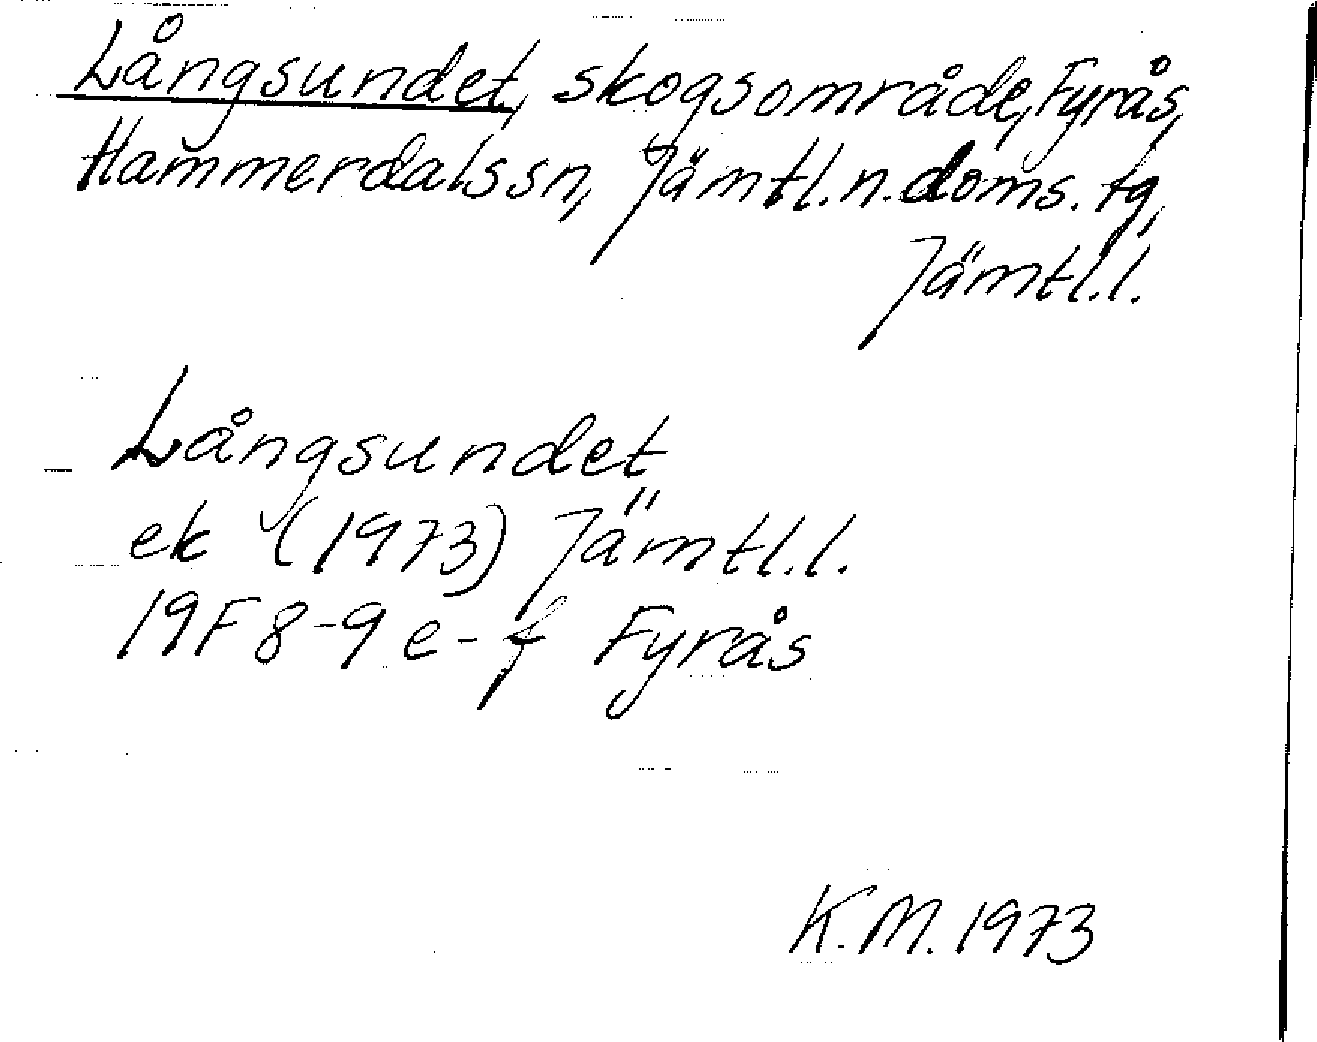 Långsundet, skogsområde, Fyrås,
Hammerdals sn, Jämtl. n. doms. tg,
Jämtl. l.
Långsundet
ek (1973) Jämtl. l.
19F 8-9 e-f Fyrås
K. M. 1973